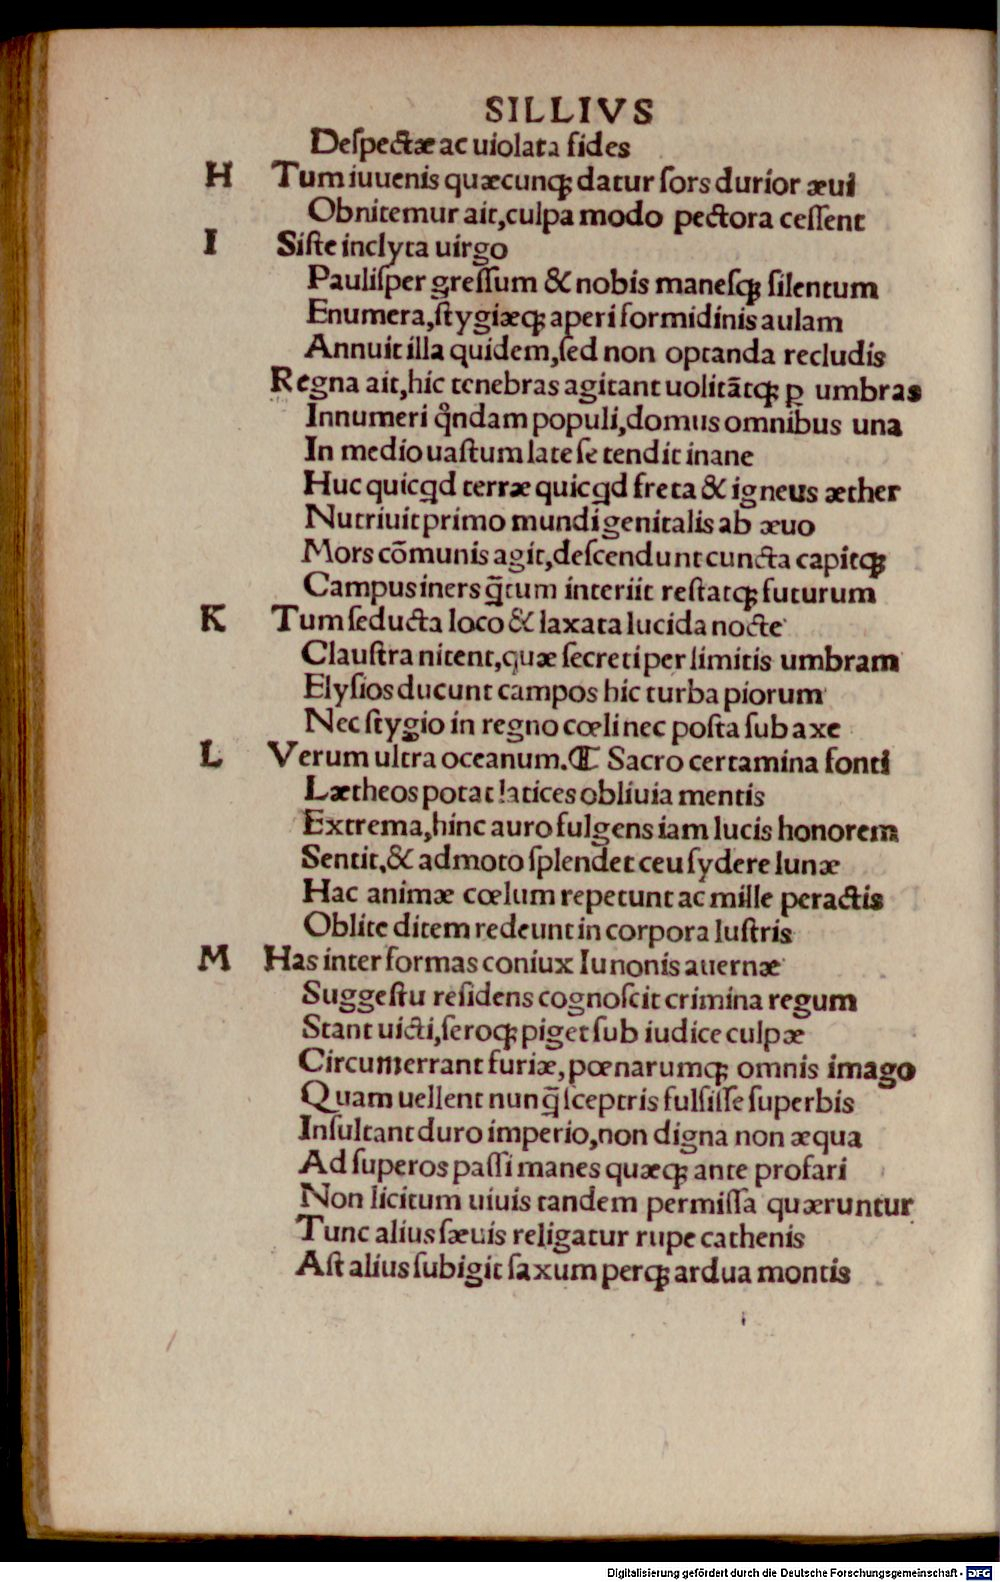 SILLIVS
Deſpectæ ac uiolata fides
H Tum iuuenis quæcunqꝫ datur ſors durior æui
Obnitemur ait, culpa modo pectora ceſſent
I Siſte inclyta uirgo
Pauliſper greſſum & nobis maneſqꝫ ſilentum
Enumera, ſtygiæqꝫ aperi formidinis aulam
Annuit illa quidem, ſed non optanda recludis
Regna ait, hic tenebras agitant uolitãtqꝫ ꝑ umbras
Innumeri qͦndam populi, domus omnibus una
In medio uaſtum late ſe tendit inane
Huc quicqd terræ quicqd freta & igneus æther
Nutriuit primo mundi genitalis ab æuo
Mors cõmunis agit, deſcendunt cuncta capitqꝫ
Campus iners q̃tum interiit reſtatqꝫ futurum
K Tum ſeducta loco & laxata lucida nocte
Clauſtra nitent, quæ ſecreti per limitis umbram
Elyſios ducunt campos hic turba piorum
Nec ſtygio in regno cœli nec poſta ſub axe
L Verum ultra oceanum. ⸿ Sacro certamina fonti
Lætheos potat latices obliuia mentis
Extrema, hinc auro fulgens iam lucis honorem
Sentit, & admoto ſplendet ceu ſydere lunæ
Hac animæ cœlum repetunt ac mille peractis
Oblite ditem redeunt in corpora luſtris
M Has inter formas coniux Iunonis auernæ
Suggeſtu reſidens cognoſcit crimina regum
Stant uicti, ſeroqꝫ piget ſub iudice culpæ
Circumerrant furiæ, pœnarumqꝫ omnis imago
Quam uellent nunq̃ ſceptris fulſiſſe ſuperbis
Inſultant duro imperio, non digna non æqua
Ad ſuperos paſſi manes quæqꝫ ante profari
Non licitum uiuis tandem permiſſa quæruntur
Tunc alius ſæuis religatur rupe cathenis
Aſt alius ſubigit ſaxum perqꝫ ardua montis
Digitalisierung gefördert durch die Deutsche Forschungsgemeinschaft - DFG